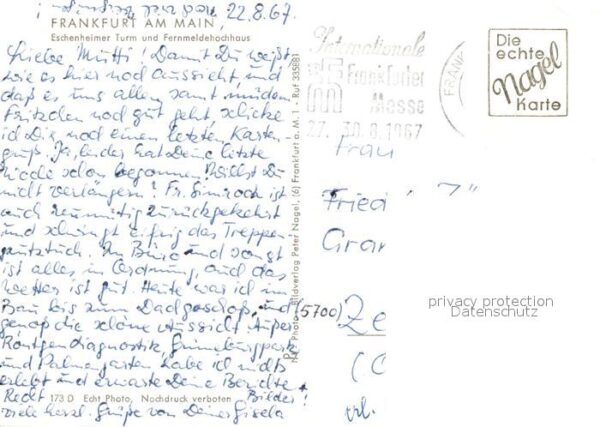 22.8.67.
FRANKFURT AM MAIN
Eschenheimer Turm und Fernmeldehochhaus
Liebe Mutti! Damit Du weißt,
wie es hier noch aussieht, und
daß es uns allen samt müdem
Fritzchen noch gut geht, schicke
ich Dir noch einen letzten Karten-
gruß. Ja, leider hat Deine letzte
Woche schon begonnen. Willst Du
nicht verlängern? Fr. ist
auch reumütig zurückgekehrt
und schwingt eifrig das Treppen-
putztuch. Im Büro und sonst
ist alles in Ordnung, auch das
Wetter ist gut. Heute war ich im
Bau bis zum Dachgeschoß und
genoß die schöne Aussicht. Außer
Röntgendiagnostik, Grüneburgpark
und Palmengarten habe ich nichts
erlebt und erwarte Deine Berichte +
Recht Bilder!
173 D Echt Photo, Nachdruck verboten
viele herzl. Grüße von Deiner Gisela
Bildverlag Peter Nagel, (6) Frankfurt a. M. 1 - Ruf 335881
Internationale
Frankfurter
Messe
27. 30.8.1967
FRANK
Die
echte
Nagel
Karte
Frau
Fried
Gran
(5700) Ze
privacy protection
Datenschutz